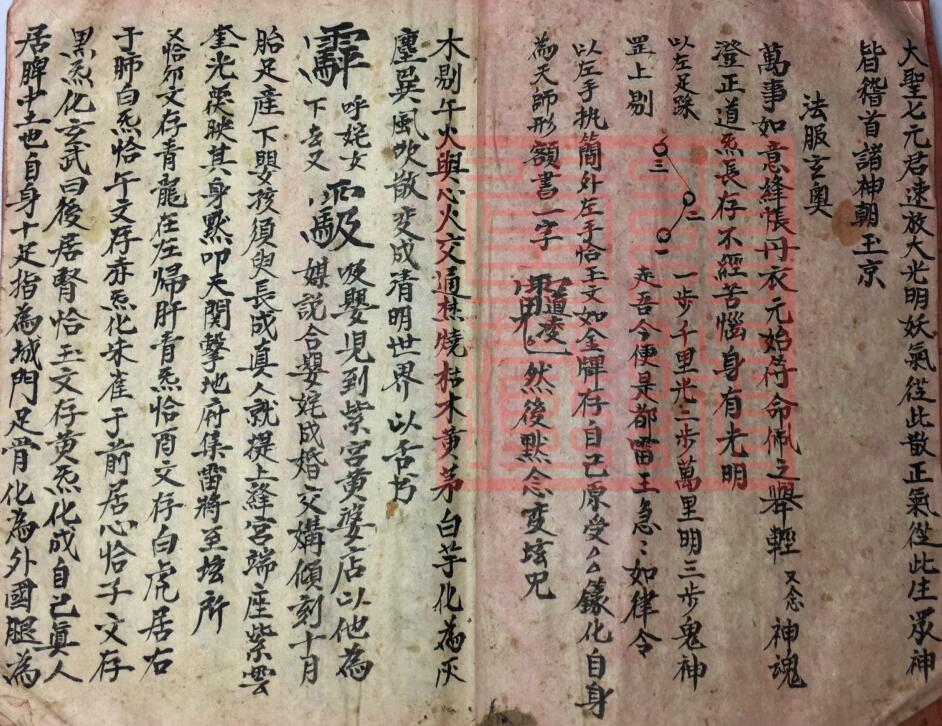 大聖七元君速放大光明妖氣從此散正氣從此生眾神
皆稽首諸神朝玉京
法服玄奧
萬事如意絳張丹衣元始符命佩之舉輕又念神魂
澄正道炁長存不經苦惱身有光明
以左足跺 一 二 三 一步千里光二步萬里明三步鬼神
罡上剔 走吾今便是都雷王急〻如律令
以左手执簡外左手恰玉文如金牌存自己原受厶厶籙化自身
為天師形額書一字 道凌 然後默念变坛咒
木剔午火與心火交通焚燒枯木黃茅白芋化為灰
塵巽風吹散变成清明世界以舌书
呼姹女 唤嬰兒到紫宮黃婆店以他為
下去又 媒説合嬰姹成婚交媾傾刻十月
胎足產下嬰孩須臾長成真人就提上絳宮端座紫雲
奎光罩映其身黙叩天関擊地府集雷將至坛所
恰卯文存青龍在左帰肝青炁恰酉文存白虎居右
于肺白炁恰午文存赤炁化朱雀于前居心恰子文存
黑炁化玄武曰後居腎恰玉文存黃炁化成自己真人
居脾中土也自身十足指為城門足骨化為外國腿為